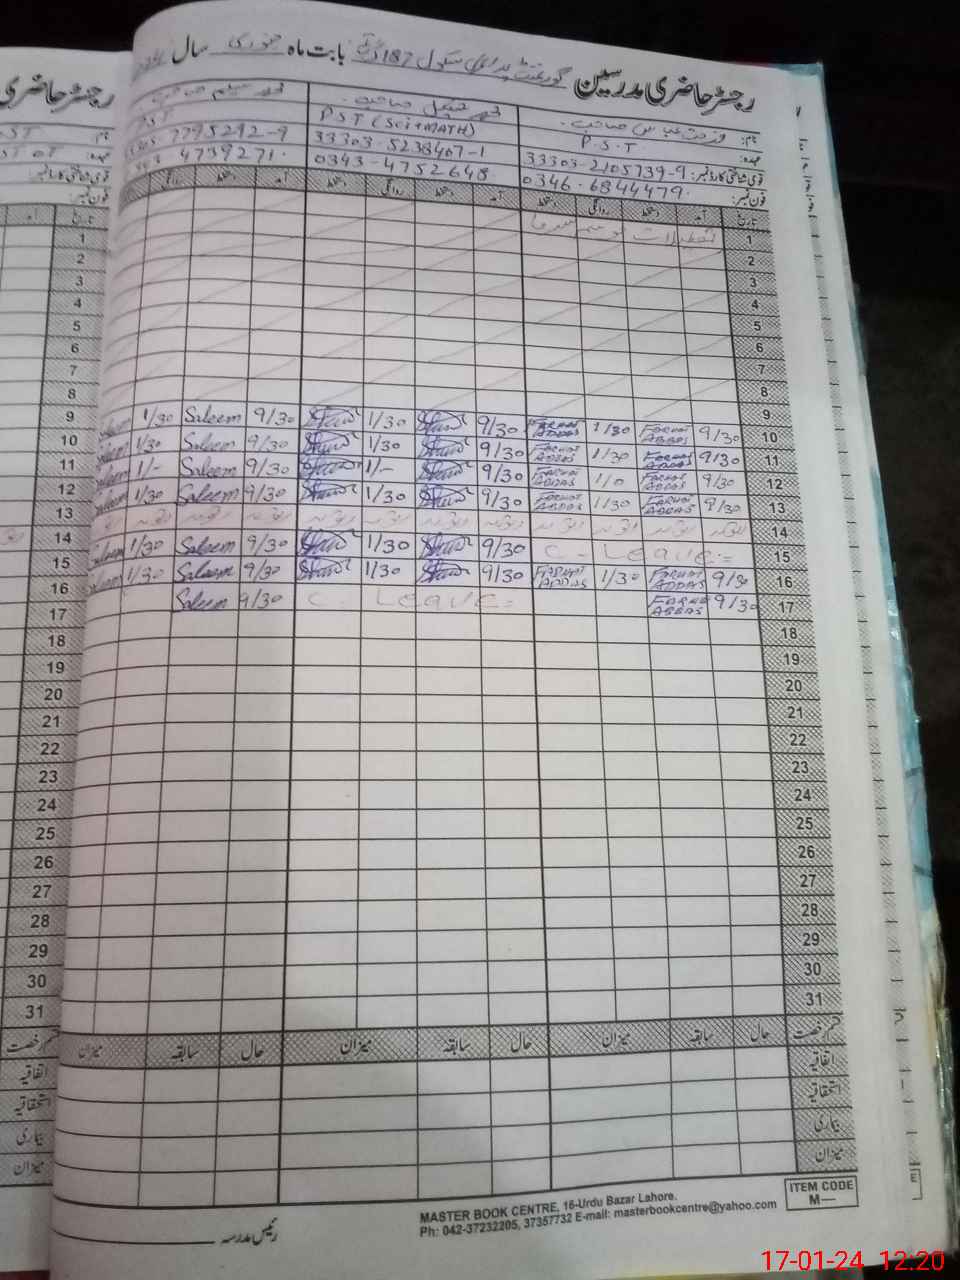 رجسٹر حاضری مدرسین گورنمنٹ پرائمری سکول 187 بابت ماہ جنوری سال
نام: فرحت عباس صاحب محمد صاحب محمد سلیم صاحب
عہدہ: P.S.T PST (Sci+MATH) PST
قومی شناختی کارڈ نمبر: 33303-2105739-9 33303-5238407-1 7795292-9
فون نمبر: 0346-6844479 0343-4752648 4739271
تاریخ آمد دستخط روانگی دستخط آمد دستخط روانگی دستخط آمد دستخط روانگی
1 تعطیلات موسم سرما
2
3
4
5
6
7
8
9 9/30 FARHAT ABBAS 1/30 FARHAT ABBAS 9/30 1/30 9/30 Saleem 1/30 Saleem
10 9/30 FARHAT ABBAS 1/30 FARHAT ABBAS 9/30 1/30 9/30 Saleem 1/30 Saleem
11 9/30 FARHAT ABBAS 1/0 FARHAT ABBAS 9/30 1/- 9/30 Saleem 1/- Saleem
12 9/30 FARHAT ABBAS 1/30 FARHAT ABBAS 9/30 1/30 9/30 Saleem 1/30 Saleem
13
14
15 C-Leave= 9/30 1/30 9/30 Saleem 1/30 Saleem
16 9/30 FARHAT ABBAS 1/30 FARHAT ABBAS 9/30 1/30 9/30 Saleem 1/30 Saleem
17 9/30 FARHAT ABBAS C Leave= 9/30 Saleem
18
19
20
21
22
23
24
25
26
27
28
29
30
31
قسم رخصت حال سابقہ میزان حال سابقہ میزان حال سابقہ میزان
اتفاقیہ
استحقاقیہ
بیماری
میزان
رئیس مدرسہ
MASTER BOOK CENTRE, 16-Urdu Bazar Lahore.
Ph: 042-37232205, 37357732 E-mail: masterbookcentre@yahoo.com
ITEM CODE
M—
17-01-24 12:20